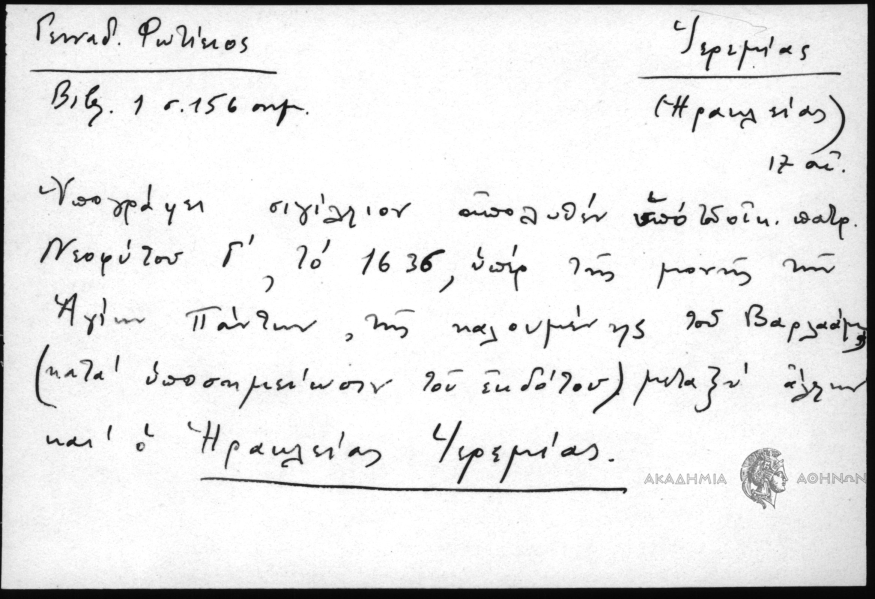 Γενναδ. Φωτίειος
Ἱερεμίας
Βιβ. 1 σ. 156 σημ.
(Ἡρακλείας)
17 αἰ.
Ὑπογράφει σιγίλλιον ἀπολυθέν ὑπό τοῦ οἰκ. πατρ.
Νεοφύτου Γ', τό 1636, ὑπέρ τῆς μονῆς τῶν
Ἁγίων Πάντων, τῆς καλουμένης τοῦ Βαρλαάμ,
(κατά ὑποσημείωσιν τοῦ ἐκδότου) μεταξύ ἄλλων
καί ὁ Ἡρακλείας Ἱερεμίας.
ΑΚΑΔΗΜΙΑ ΑΘΗΝΩΝ